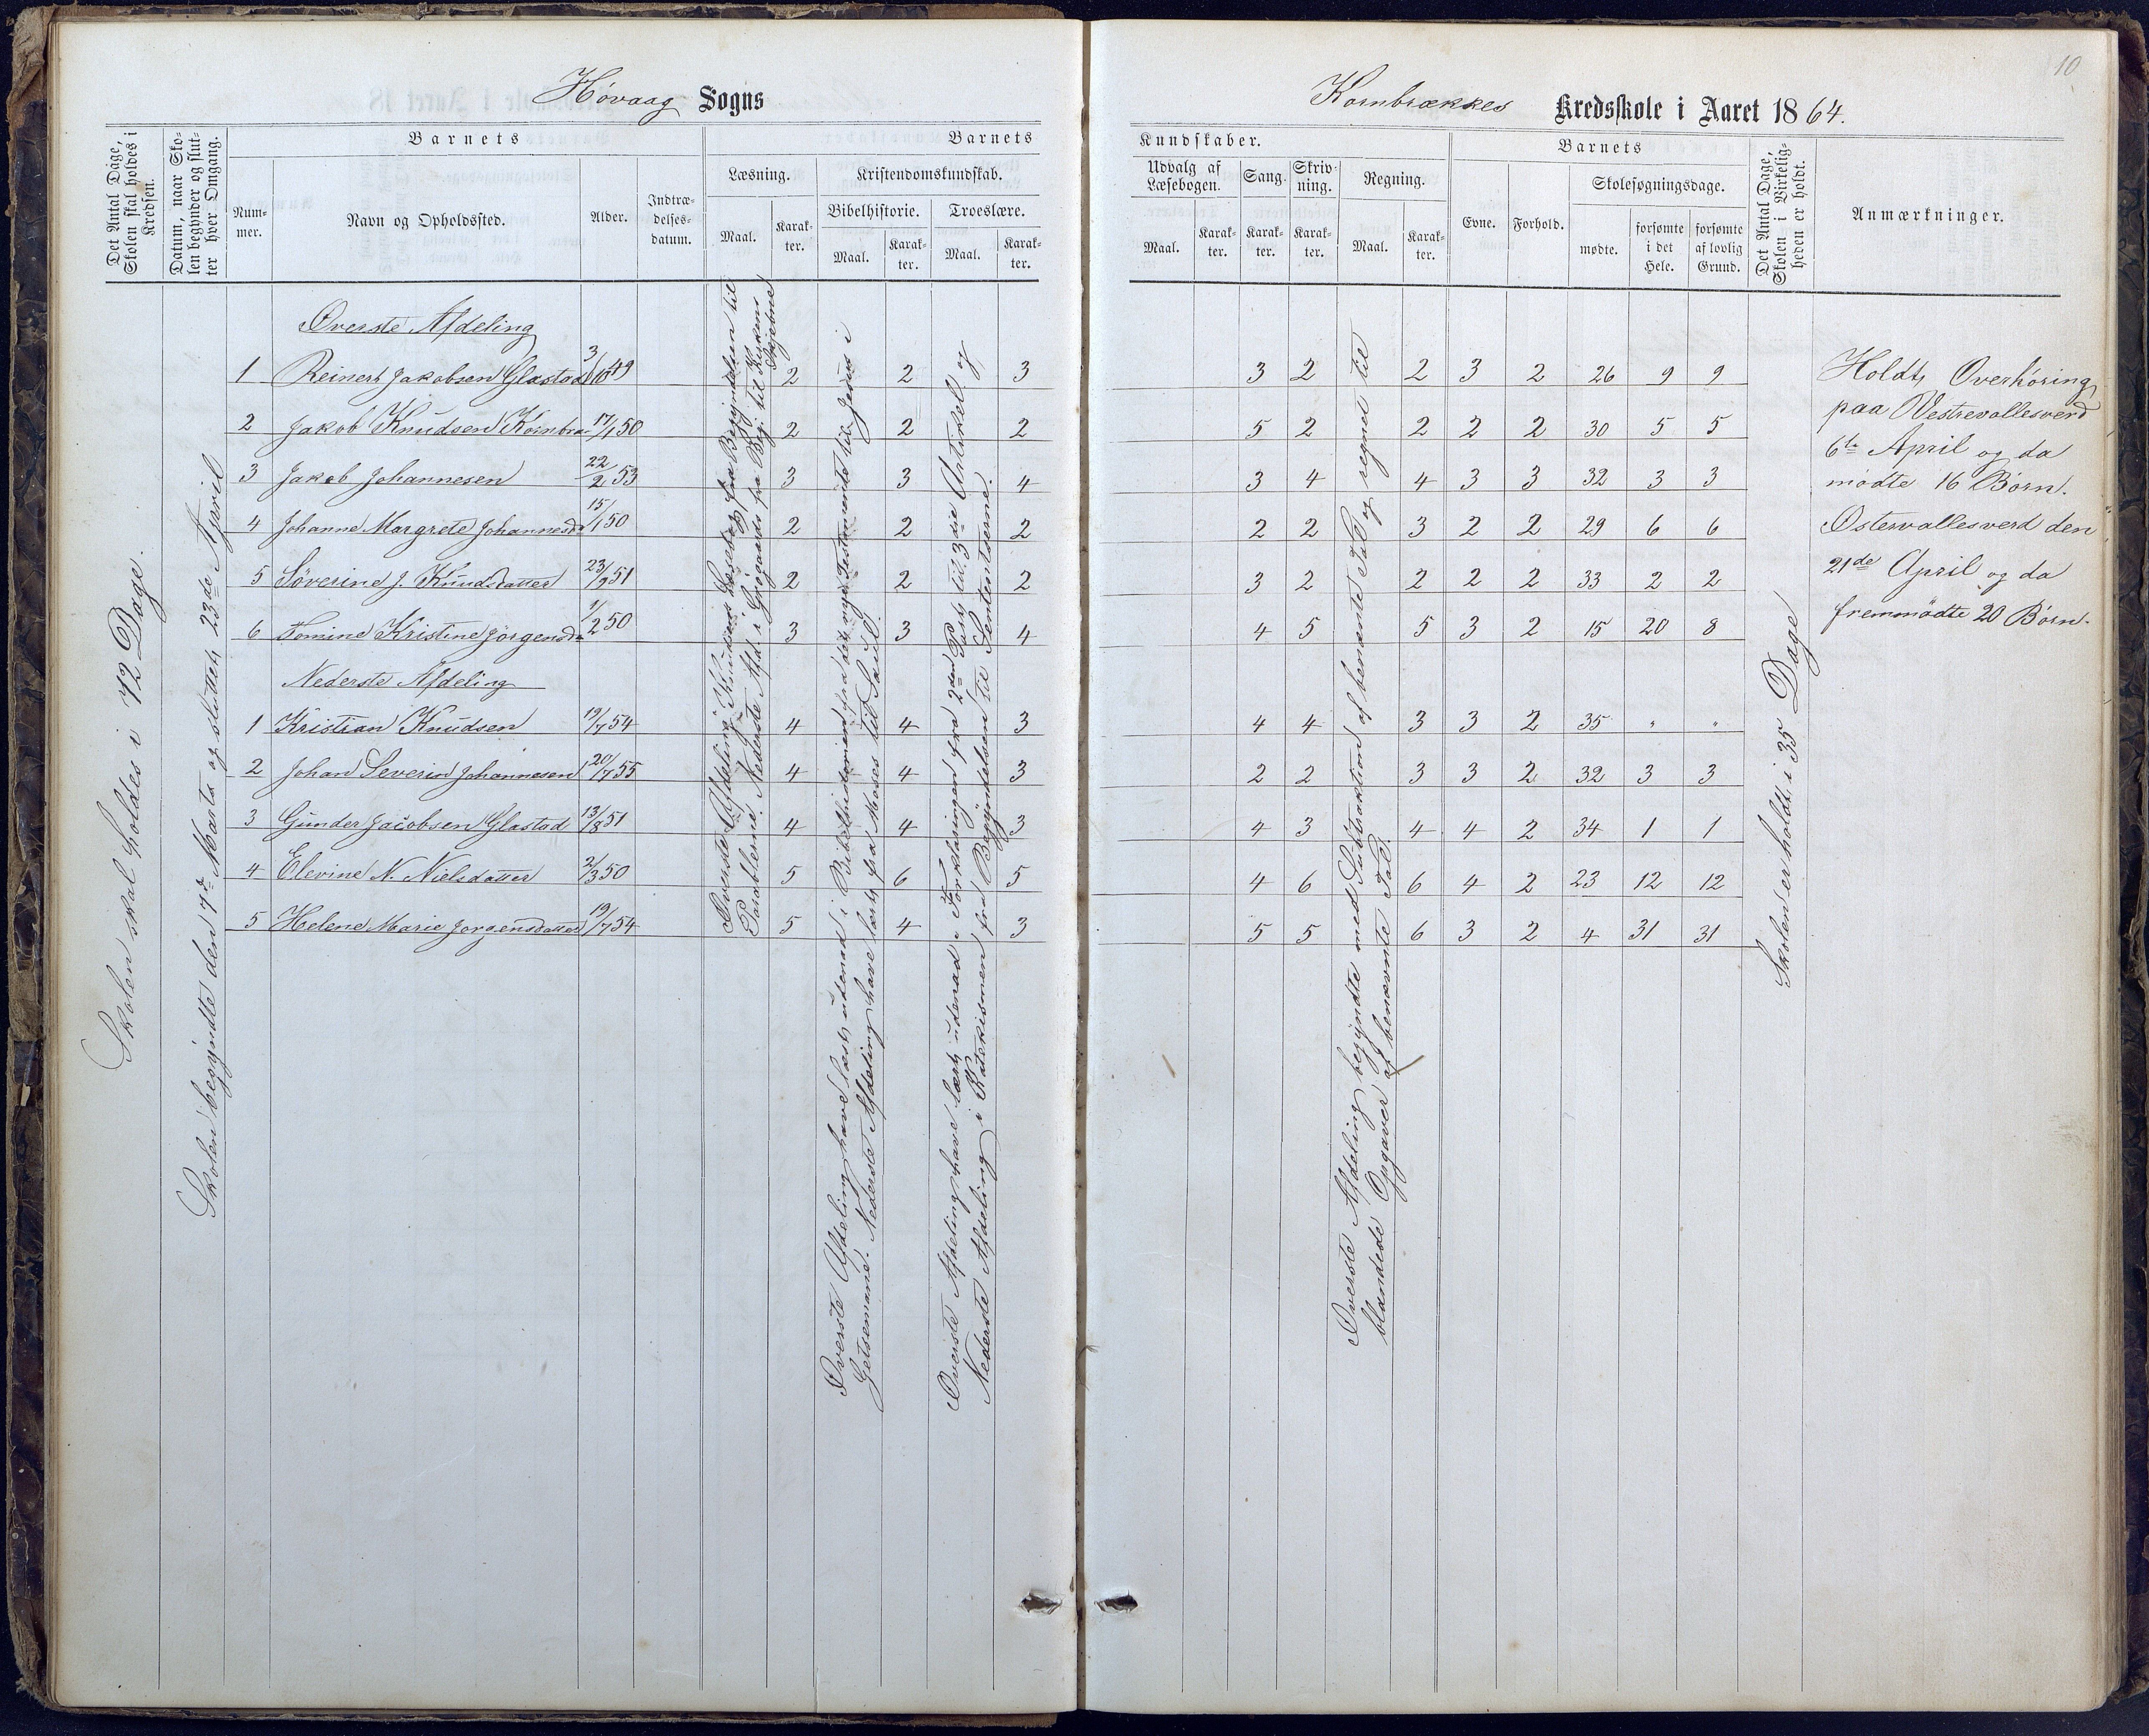 10
Høvaag Sogns
Kornbrækkes Kredsskole i Aaret 1864.
Det Antal Dage, Skolen skal holdes i Kredsen.
Datum, naar Skolen begynder og slutter hver Omgang.
Barnets
Nummer.
Navn og Opholdssted.
Alder.
Indtrædelsesdatum.
Barnets
Læsning.
Maal.
Karakter.
Kristendomskundskab.
Bibelhistorie.
Maal.
Karakter.
Troeslære.
Maal.
Karakter.
Kundskaber.
Udvalg af Læsebogen.
Maal.
Karakter.
Sang.
Karakter.
Skrivning.
Karakter.
Regning.
Maal.
Karakter.
Barnets
Evne.
Forhold.
Skolesøgningsdage.
mødte.
forsømte i det Hele.
forsømte af lovlig Grund.
Det Antal Dage, Skolen i Virkeligheden er holdt.
Anmærkninger.
Skolen skal holdes i 72 Dage.
Skolen begyndte den 7de Marts og sluttet 23de April
Øverste Afdeling
1 Reinert Jakobsen Glastad 3/10 49 2 2 3 3 2 2 3 2 26 9 9
2 Jakob Knudsen Kornbræ 17/1 50 2 2 2 5 2 2 2 2 30 5 5
3 Jakob Johannesen 22/2 53 3 3 4 3 4 4 3 3 32 3 3
4 Johanne Margrete Johannesd 15/1 50 2 2 2 2 2 3 2 2 29 6 6
5 Söverine J. Knudsdatter 23/9 51 2 2 2 3 2 2 2 2 33 2 2
6 Tomine Kristine Jörgensd 1/2 50 3 3 4 4 5 5 3 2 15 20 8
Nederste Afdeling
1 Kristian Knudsen 19/7 54 4 4 3 4 4 3 3 2 35 " "
2 Johan Severin Johannesen 20/7 55 4 4 3 2 2 3 3 2 32 3 3
3 Gunder Jacobsen Glastad 13/8 51 4 4 3 4 3 4 4 2 34 1 1
4 Elevine N. Nielsdatter 2/3 50 5 6 5 4 6 6 4 2 23 12 12
5 Helene Marie Jorgensdatter 19/7 54 5 4 3 5 5 6 3 2 4 31 31
Øverste Afdeling Knudsens Læsebog fra Begyndelsen til
Parablerne. Nederste Afd. i Grögaards fra Beg. til Kukens
Øverste Afdeling have læst udenad i Bibelhistorien fra det nye Testamente til Jesus i
Getsemane. Nederste Afdeling have læst fra Moses til Saul.
Øverste Afdeling have lært udenad i Forklaringen fra 2den Part til 3die Artikel og
Nederste Afdeling i Katekismen fra Begyndelsen til Sententserne.
Øverste Afdeling begyndte med Subtraktion af benævnte Tal og regnet til
blandede Opgaver af benævnte Tal.
Skolen er holdt i 35 Dage
Holdt Overhøring
paa Vestrevallesverd
6te April og da
mødte 16 Børn.
Østervallesverd den
21de April og da
fremmødte 20 Børn.